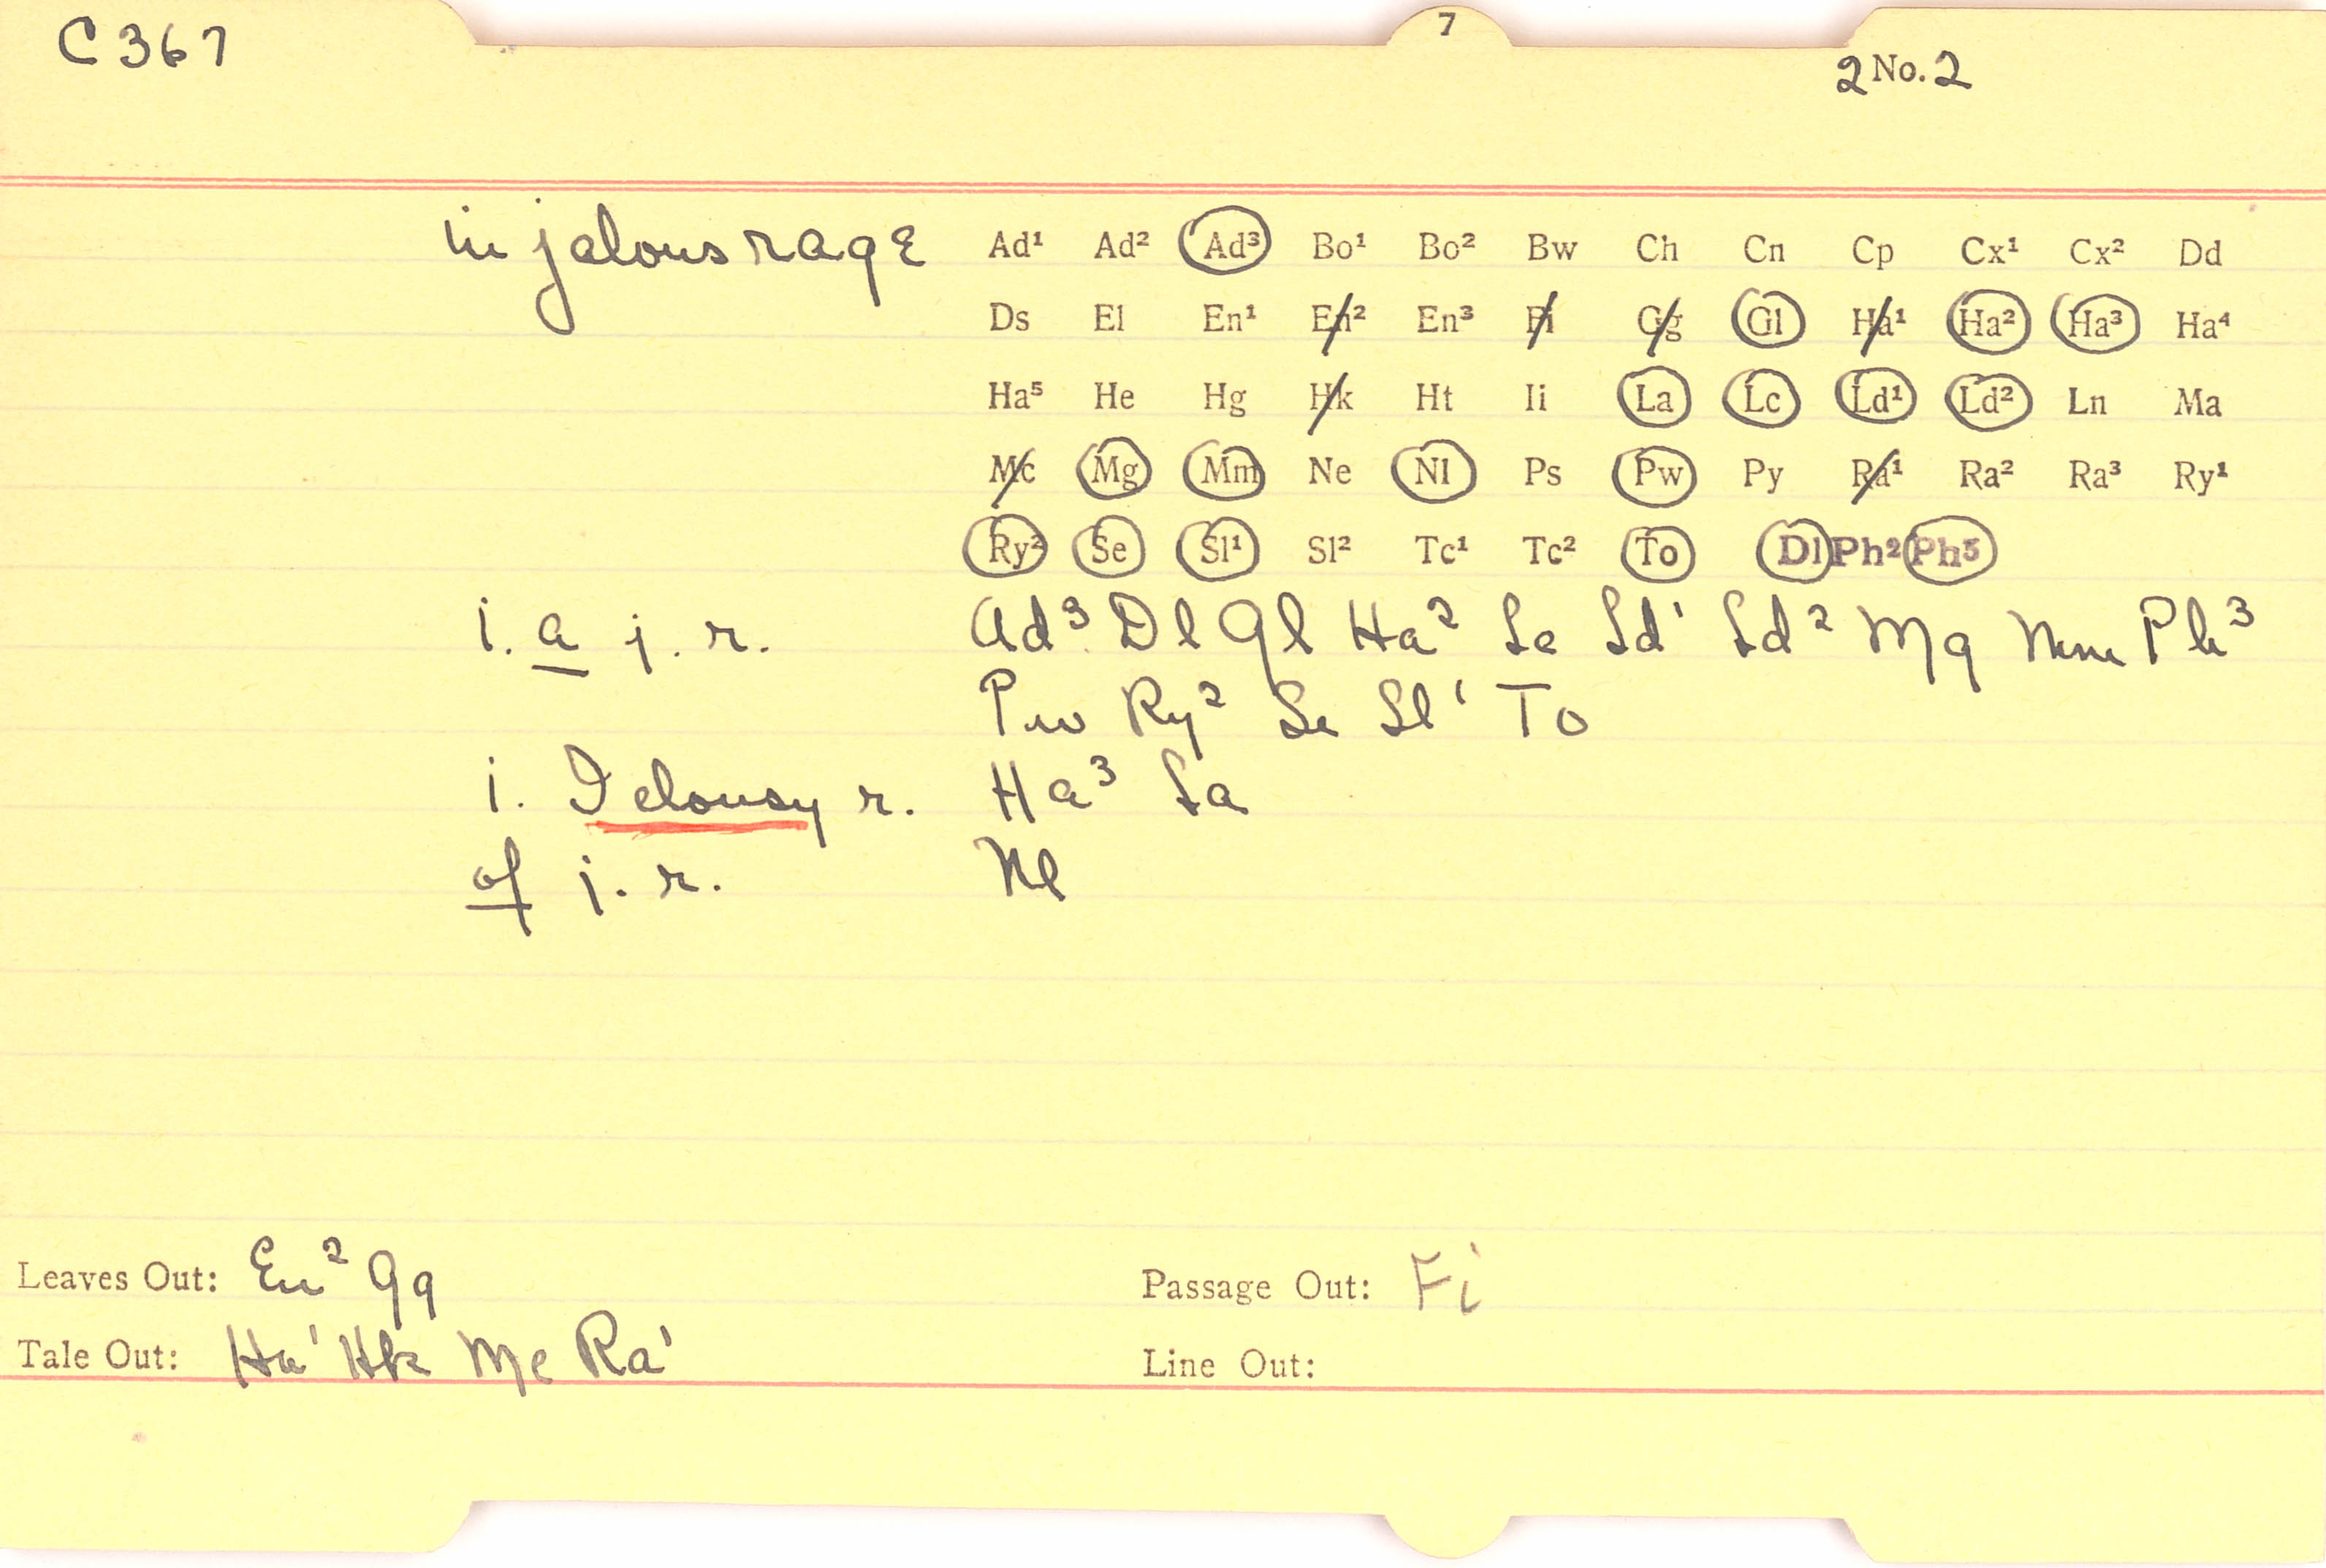 C 367
7
2 No. 2
in jalous rage Ad¹ Ad² Ad³ Bo¹ Bo² Bw Ch Cn Cp Cx¹ Cx² Dd
Ds El En¹ En² En³ Fi Gg Gl Ha¹ Ha² Ha³ Ha⁴
Ha⁵ He Hg Hk Ht Ii La Lc Ld¹ Ld² Ln Ma
Mc Mg Mm Ne Nl Ps Pw Py Ra¹ Ra² Ra³ Ry¹
Ry² Se Sl¹ Sl² Tc¹ Tc² To Dl Ph² Ph³
i. a j. r. Ad³ Dl Gl Ha² Lc Ld¹ Ld² Mg Mm Ph³
Pw Ry² Se Sl¹ To
i. Ielousy r. Ha³ La
of j. r. Nl
Leaves Out: En² Gg
Passage Out: Fi
Tale Out: Ha¹ Hk Mc Ra¹
Line Out: